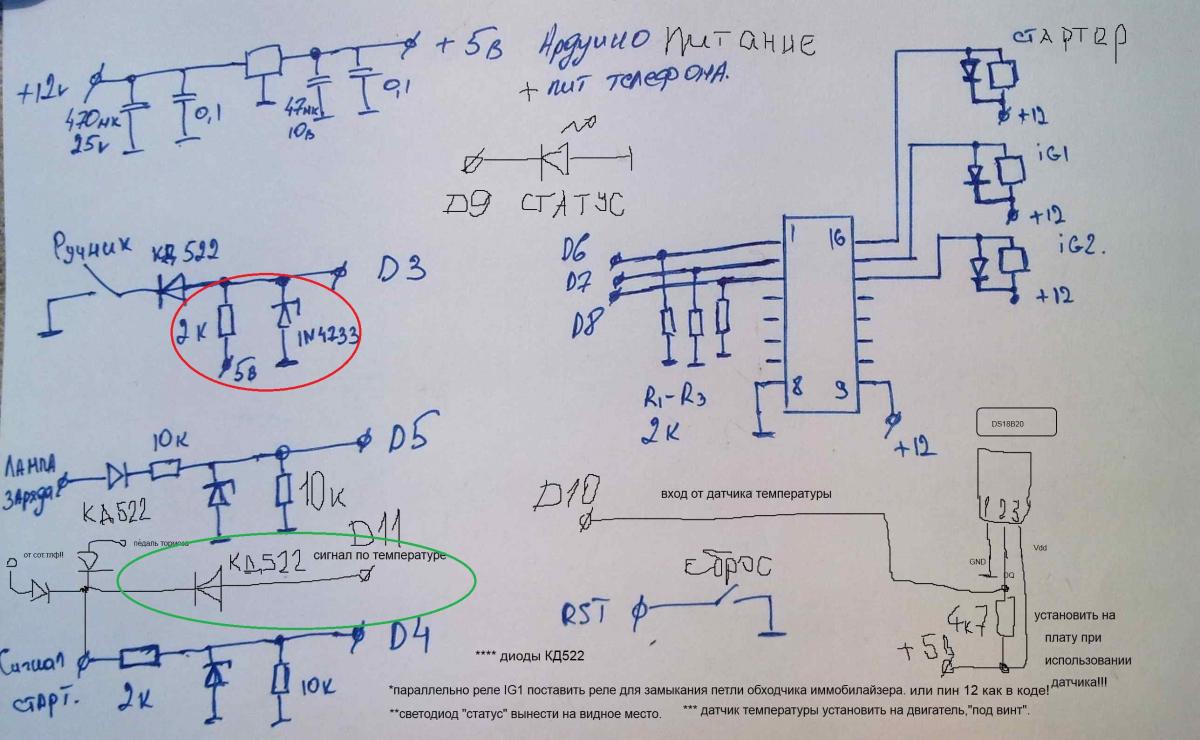 +12v
470мк
25v
0,1
47мк
10в
0,1
+5в Ардуино питание
+ пит телефона.
D9 СТАТУС
СТАРТЕР
+12
iG1
+12
iG2.
+12
Ручник
КД522
D3
2К
1N4733
5в
D6
D7
D8
1
16
8
9
R1-R3
2К
+12
Лампа
заряда
10К
КД522
D5
10К
D11
сигнал по температуре
КД522
от сот.тлф!!
педаль тормоза
Сигнал
СТАРТ.
2К
D4
10К
D10
вход от датчика температуры
Сброс
RST
DS18B20
1 2 3
GND
DQ
Vdd
4к7
+5в
установить на
плату при
использовании
датчика!!!
**** диоды КД522
*параллельно реле IG1 поставить реле для замыкания петли обходчика иммобилайзера. или пин 12 как в коде!
**светодиод "статус" вынести на видное место.
*** датчик температуры установить на двигатель,"под винт".